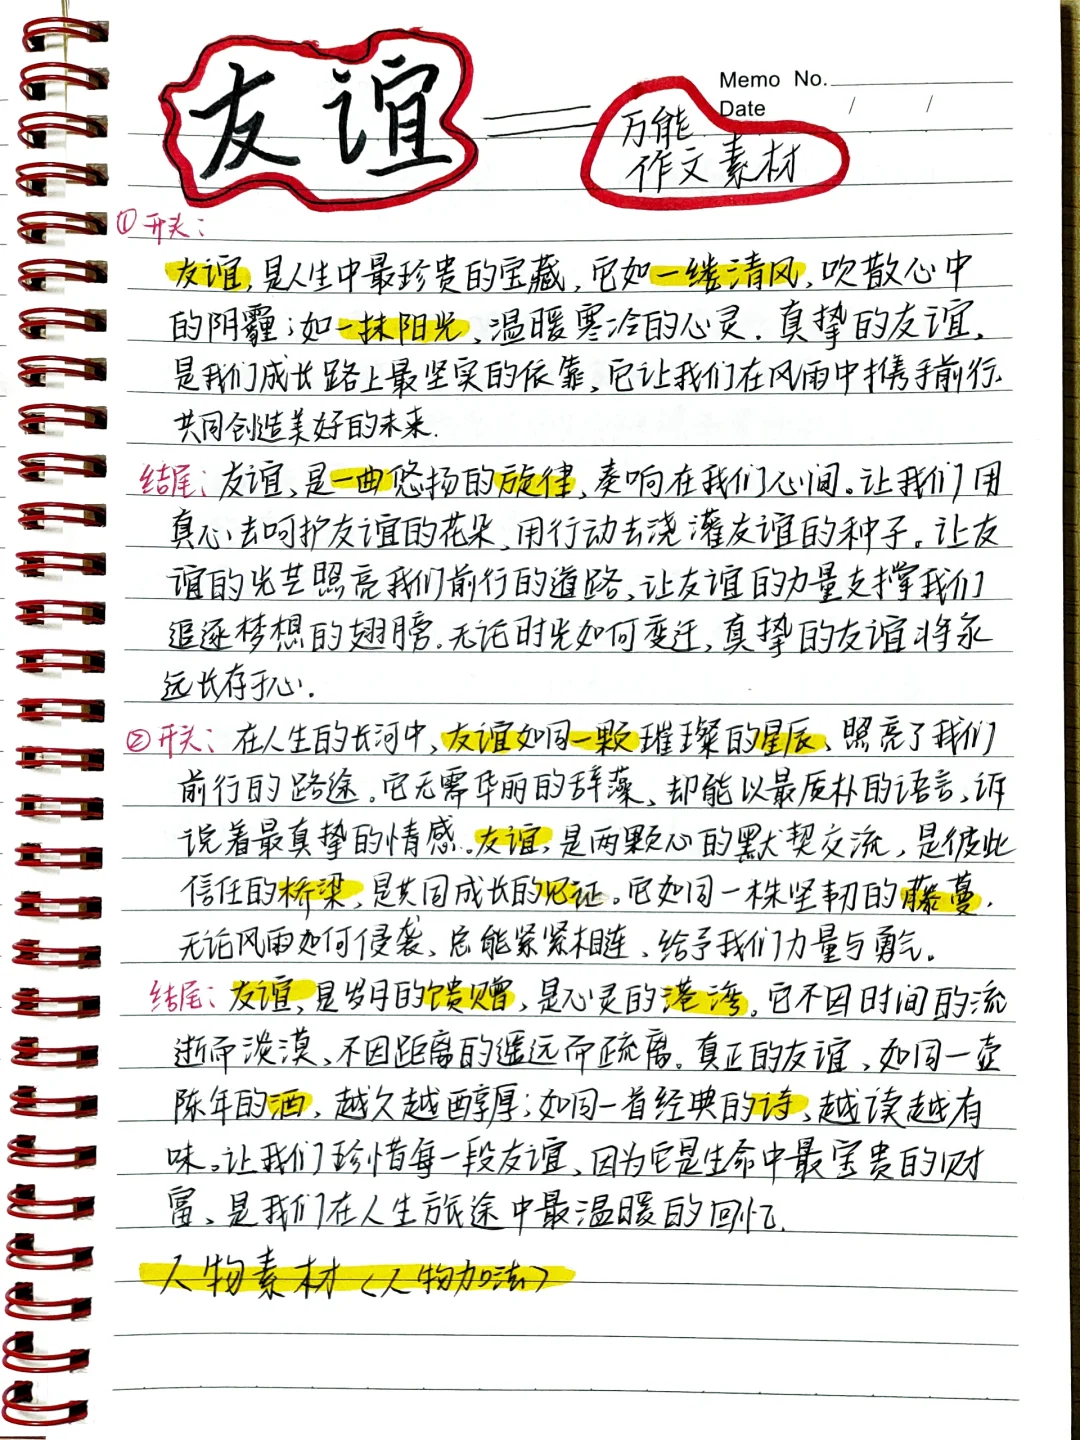 友谊
Memo No.
Date / /
万能
作文素材
①开头：
友谊，是人生中最珍贵的宝藏，它如一缕清风，吹散心中
的阴霾；如一抹阳光，温暖寒冷的心灵．真挚的友谊，
是我们成长路上最坚实的依靠，它让我们在风雨中携手前行．
共同创造美好的未来．
结尾：友谊，是一曲悠扬的旋律，奏响在我们心间。让我们用
真心去呵护友谊的花朵，用行动去浇灌友谊的种子。让友
谊的光芒照亮我们前行的道路，让友谊的力量支撑我们
追逐梦想的翅膀．无论时光如何变迁，真挚的友谊将永
远长存于心．
②开头：在人生的长河中，友谊如同一颗璀璨的星辰，照亮了我们
前行的路途．它无需华丽的辞藻，却能以最质朴的语言，诉
说着最真挚的情感．友谊，是两颗心的默契交流，是彼此
信任的桥梁，是共同成长的见证。它如同一株坚韧的藤蔓，
无论风雨如何侵袭，总能紧紧相连，给予我们力量与勇气。
结尾：友谊，是岁月的馈赠，是心灵的港湾。它不因时间的流
逝而淡漠，不因距离的遥远而疏离。真正的友谊，如同一壶
陈年的酒，越久越醇厚；如同一首经典的诗，越读越有
味。让我们珍惜每一段友谊，因为它是生命中最宝贵的财
富，是我们在人生旅途中最温暖的回忆．
人物素材（人物加法）